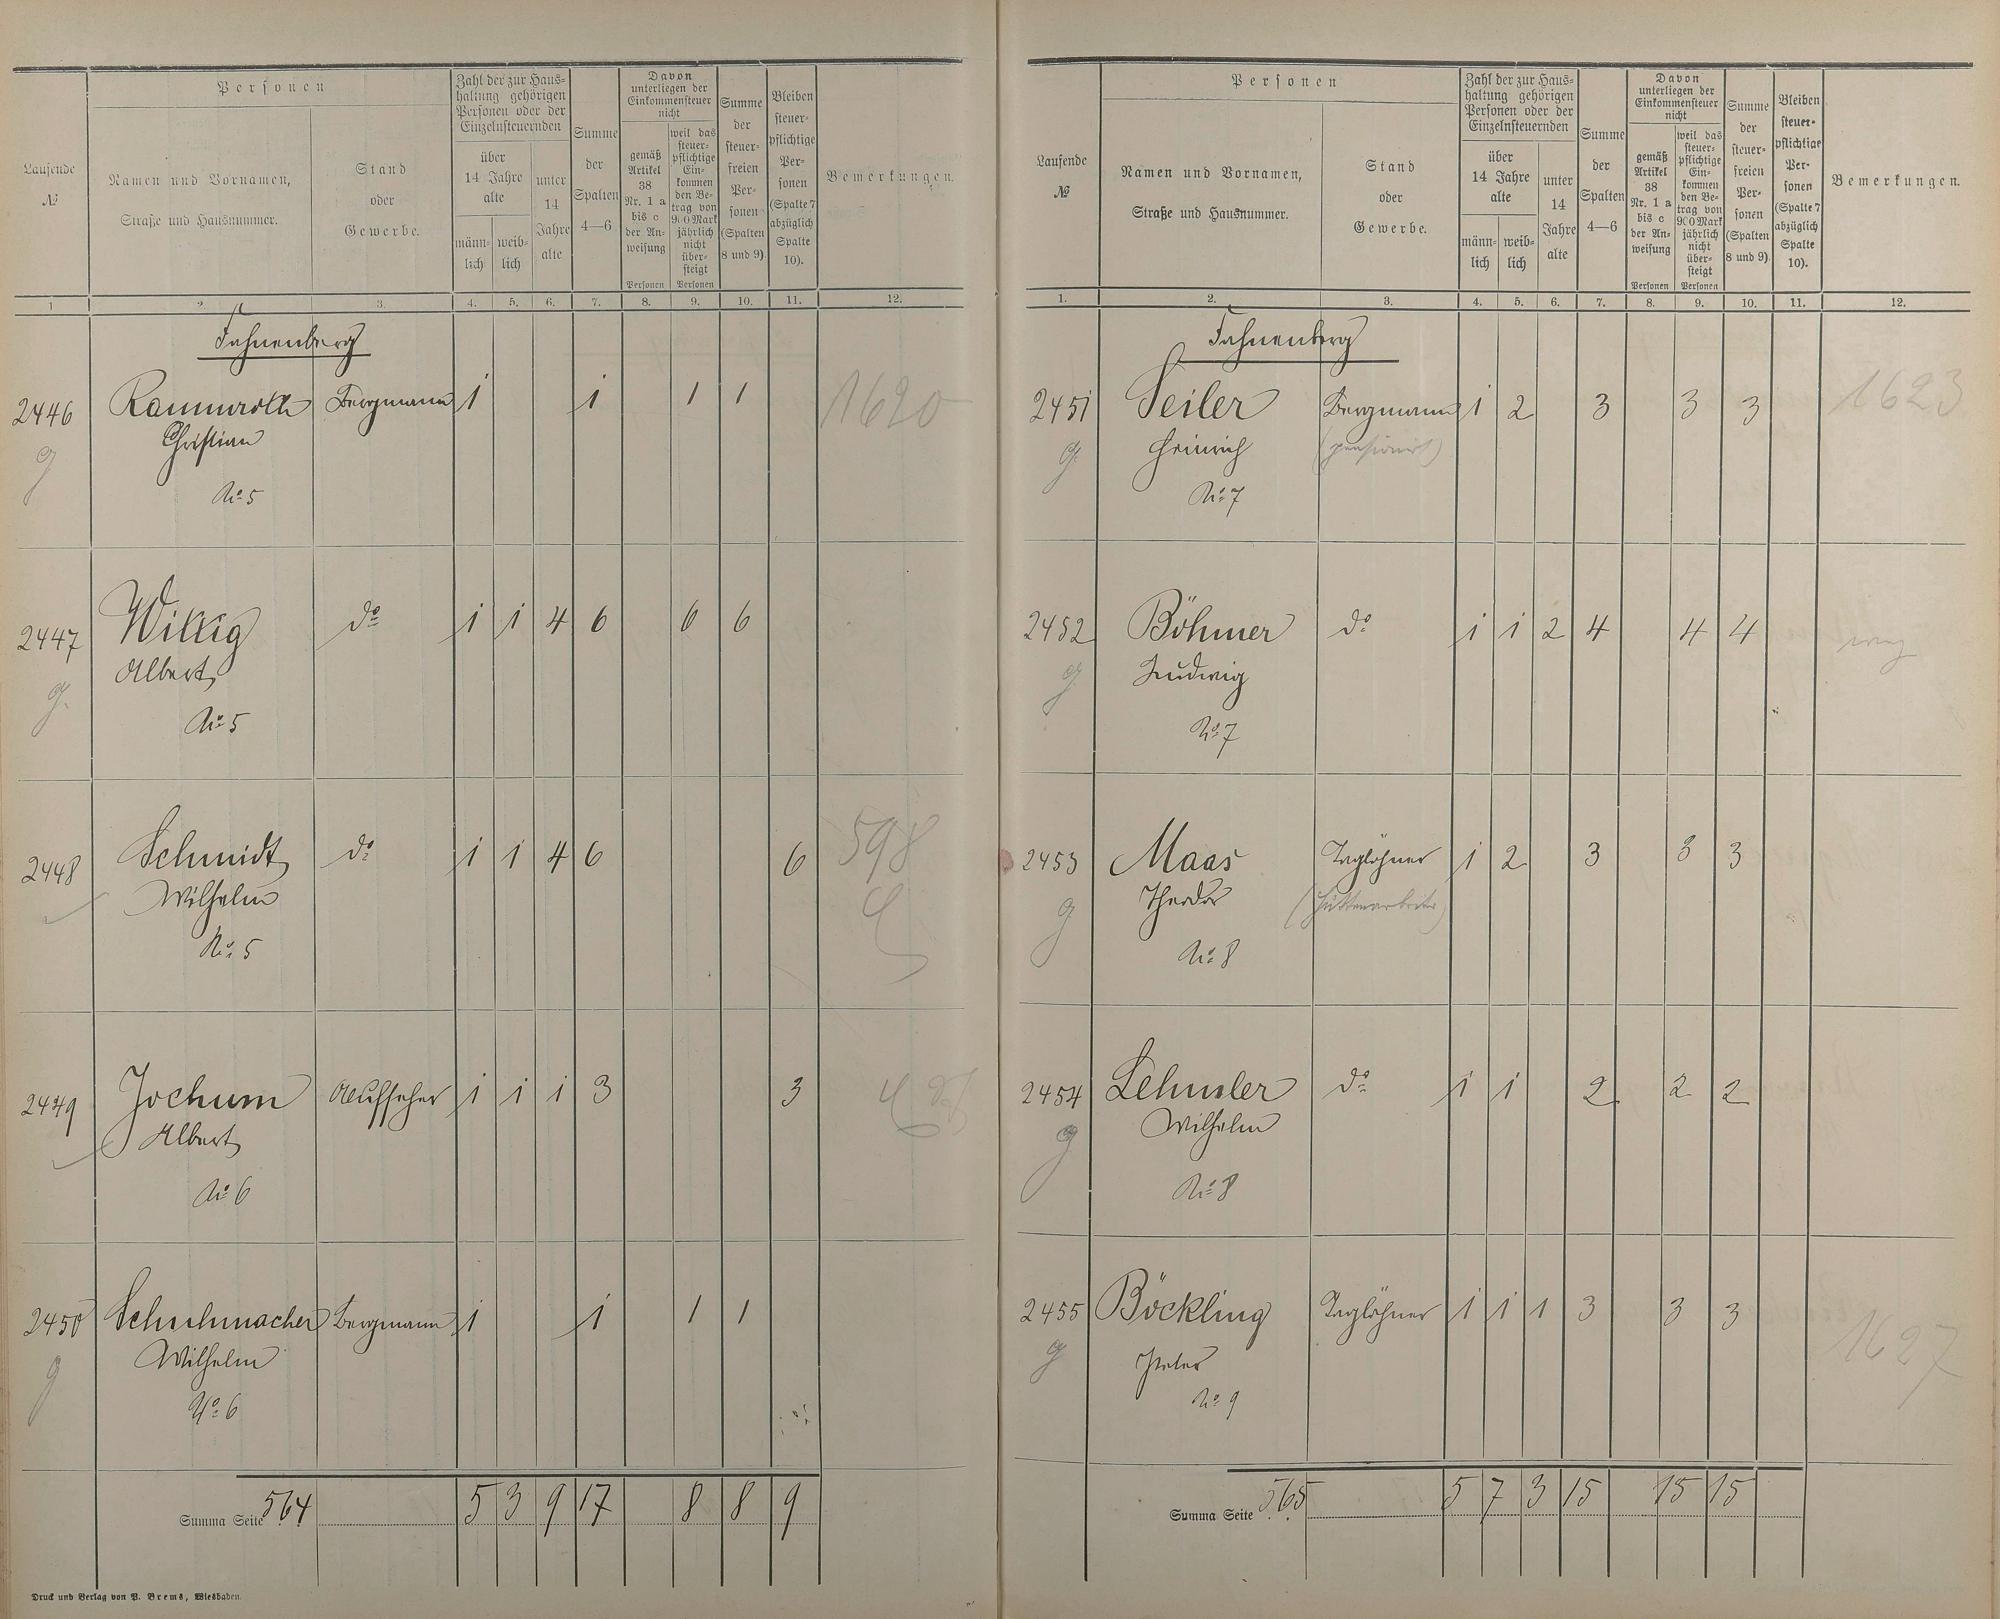 Personen
Laufende
№
Namen und Vornamen,
Straße und Hausnummer.
Stand
oder
Gewerbe.
Zahl der zur Haus-
haltung gehörigen
Personen oder der
Einzelnsteuernden
über
14 Jahre
alte
männ-
lich
weib-
lich
unter
14
Jahre
alte
Summe
der
Spalten
4—6
Davon
unterliegen der
Einkommensteuer
nicht
gemäß
Artikel
38
Nr. 1 a
bis c
der An-
weisung
Personen
weil das
steuer-
pflichtige
Ein-
kommen
den Be-
trag von
900 Mark
jährlich
nicht
über-
steigt
Personen
Summe
der
steuer-
freien
Per-
sonen
(Spalten
8 und 9)
Bleiben
steuer-
pflichtige
Per-
sonen
(Spalte 7
abzüglich
Spalte
10).
Bemerkungen.
1 2. 3. 4. 5. 6. 7. 8. 9. 10. 11. 12.
Fahnenberg
2446 Rammroth Bergmann 1 1 1 1 1620
g Christian
No 5
2447 Willig do 1 1 4 6 6 6
g. Albert
No 5
2448 Schmidt do 1 1 4 6 6 598
Wilhelm
No 5
2449 Jochum Aufseher 1 1 1 3 3
Albert
No 6
2450 Schuhmacher Bergmann 1 1 1 1
g Wilhelm
No 6
Summa Seite 564 5 3 9 17 8 8 9
Druck und Verlag von P. Brems, Wiesbaden.
Personen
Laufende
№
Namen und Vornamen,
Straße und Hausnummer.
Stand
oder
Gewerbe.
Zahl der zur Haus-
haltung gehörigen
Personen oder der
Einzelnsteuernden
über
14 Jahre
alte
männ-
lich
weib-
lich
unter
14
Jahre
alte
Summe
der
Spalten
4—6
Davon
unterliegen der
Einkommensteuer
nicht
gemäß
Artikel
38
Nr. 1 a
bis c
der An-
weisung
Personen
weil das
steuer-
pflichtige
Ein-
kommen
den Be-
trag von
900 Mark
jährlich
nicht
über-
steigt
Personen
Summe
der
steuer-
freien
Per-
sonen
(Spalten
8 und 9)
Bleiben
steuer-
pflichtige
Per-
sonen
(Spalte 7
abzüglich
Spalte
10).
Bemerkungen.
1. 2. 3. 4. 5. 6. 7. 8. 9. 10. 11. 12.
Fahnenberg
2451 Seiler Bergmann 1 2 3 3 3 1623
g. Heinrich (pensionirt)
No 7
2452 Böhmer do 1 1 2 4 4 4 weg
g. Ludwig
No 7
2453 Maas Taglöhner 1 2 3 3 3
g Theodor (Hüttenarbeiter)
No 8
2454 Lehmler do 1 1 2 2 2
g Wilhelm
No 8
2455 Böckling Taglöhner 1 1 1 3 3 3 1627
g Peter
No 9
Summa Seite 565 5 7 3 15 15 15